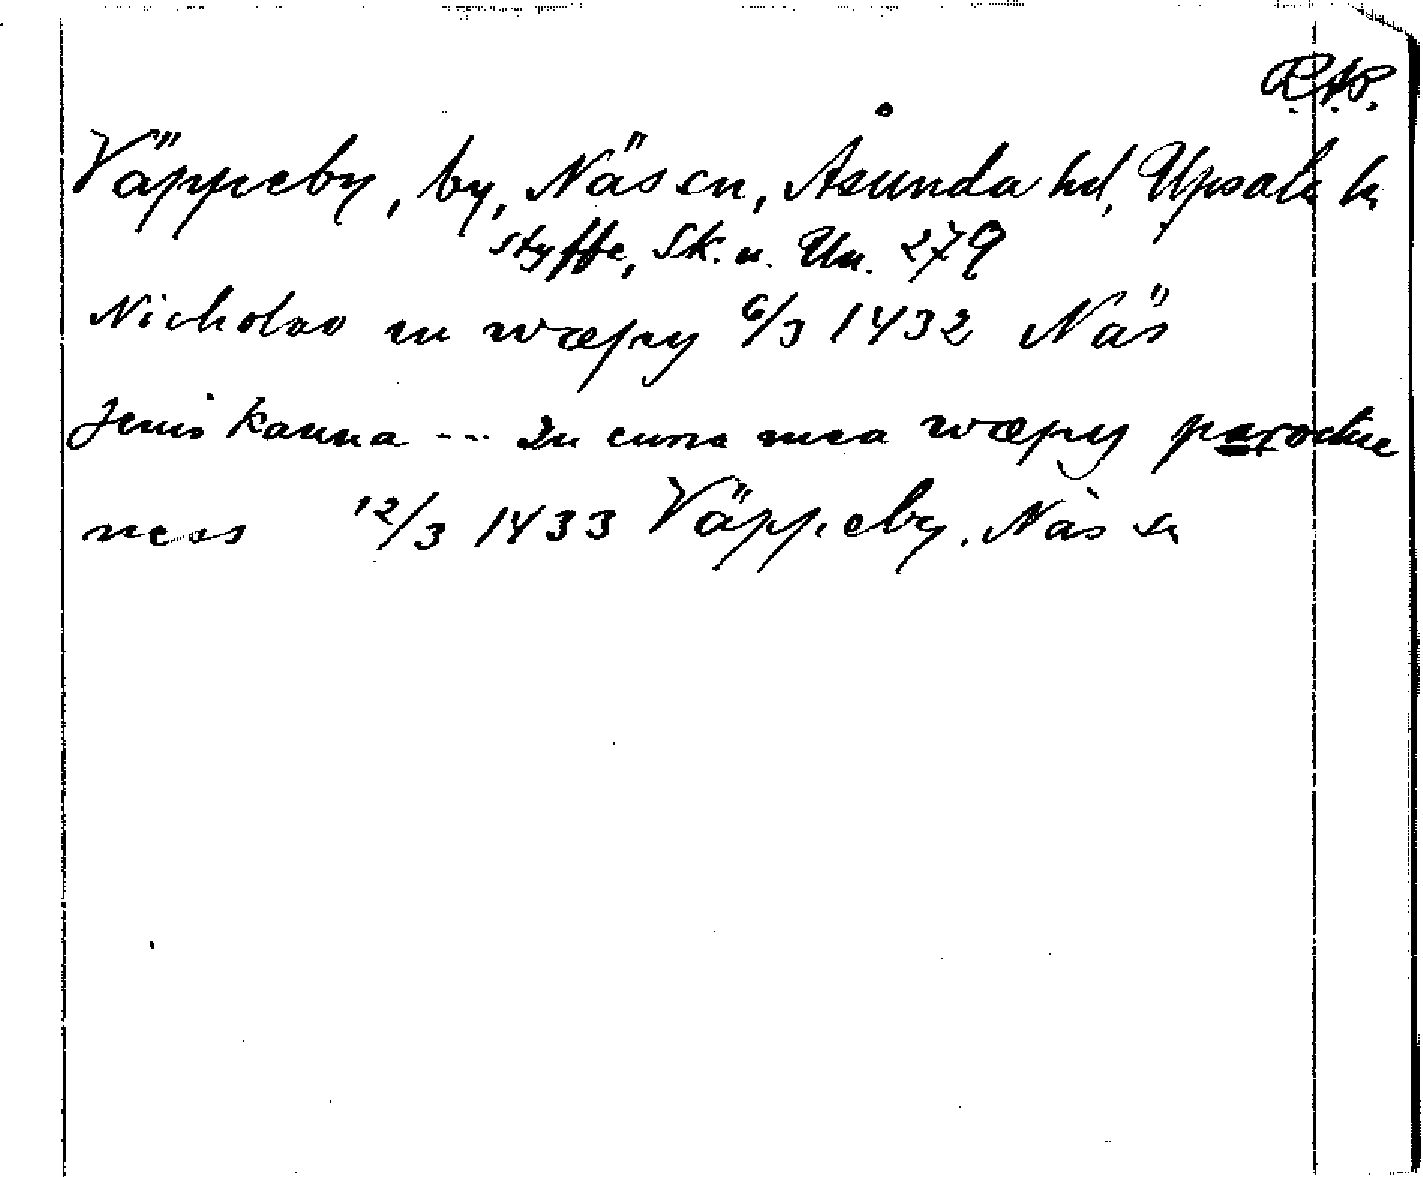 R.A.P.
Väppeby, by, Näs sn, Åsunda hd, Upsala ln
Styffe, Sk. u. Un. 279
Nicholao in wæpy 6/3 1432 Näs
Jenis kanna --- In curia mea wæpy parochie
næss 12/3 1433 Väppeby, Näs sn